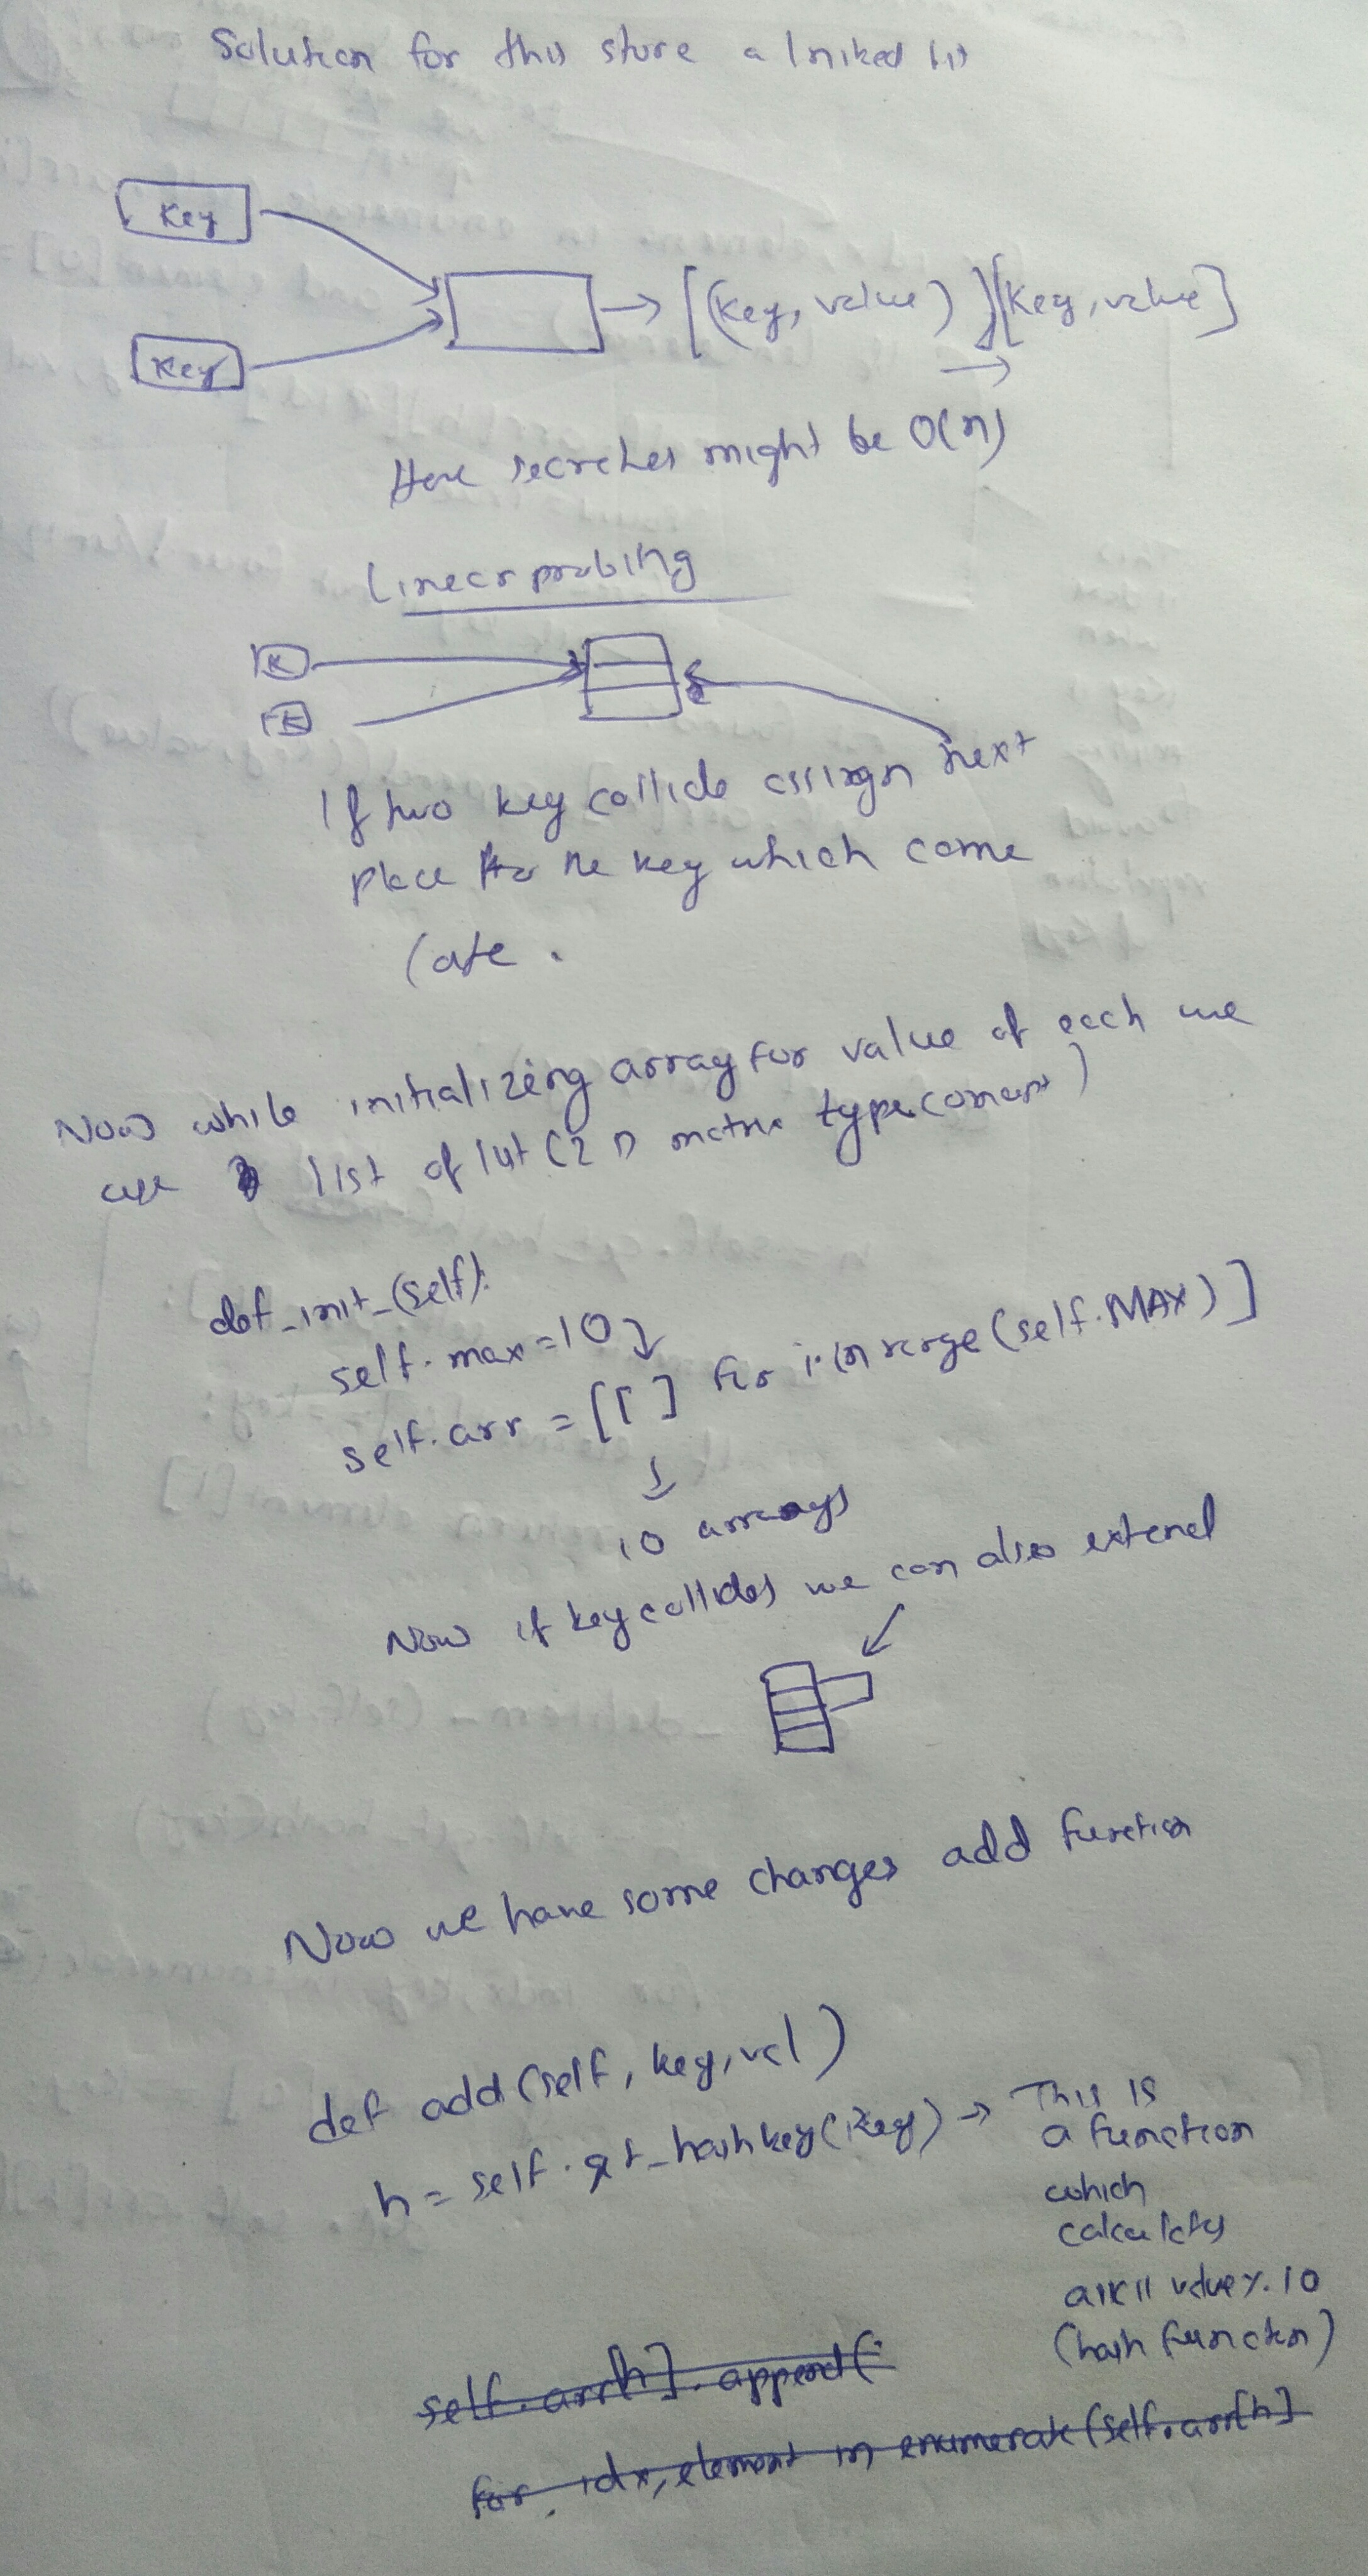 Solution for this store a lniked lis
Key
[(Key, value) ][Key, value]
Key
Here searches might be O(n)
Linear probing
K
K
If two key collide assign next
place for the key which come
late .
Now while initializing array for value of each we
use list of list (2 D matrix type concept)
def _init_(self):
self. max = 10
self. arr = [[ ] for i in range (self. MAX) ]
10 arrays
Now if key collides we can also extend
Now we have some changes add function
def add (self, key, val )
h = self . get_hashkey (key) → This is
a function
which
calculates
ascii value % 10
(hash function)
self. arr[h]. append (
for idx, element in enumerate (self. arr[h]